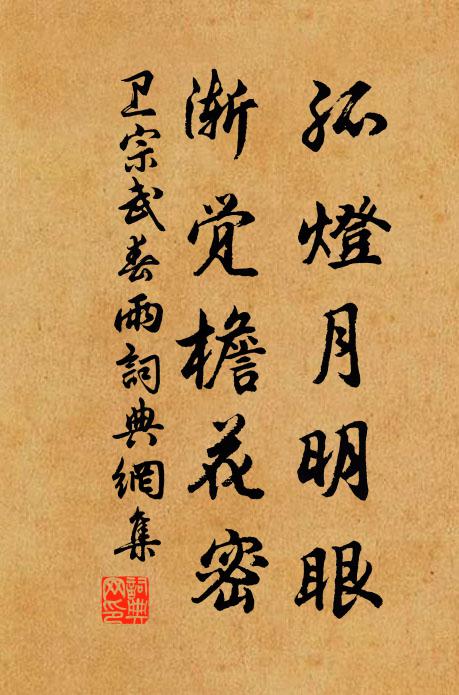 孤燈月明眼
渐觉檐花密
卫宗武春雨詞典網集
詞典網印